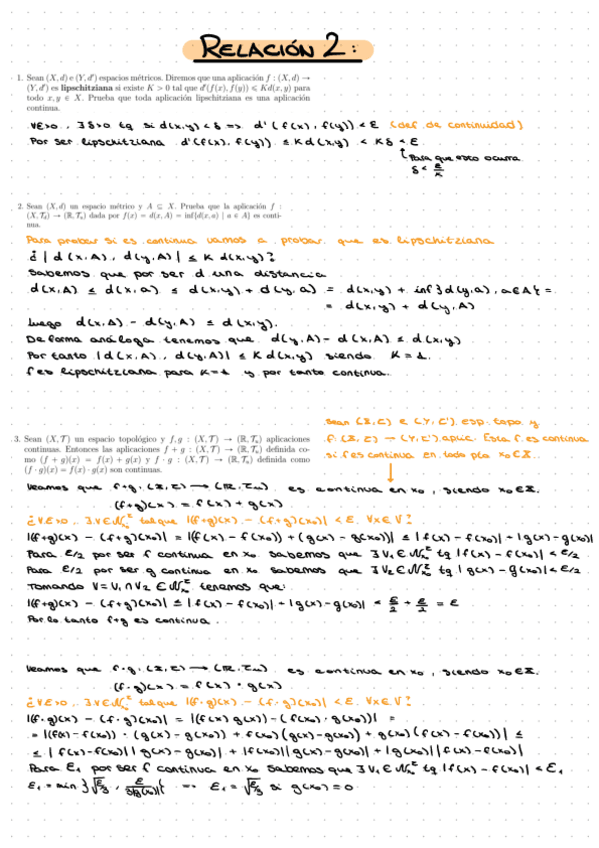 RELACIÓN 2:
1. Sean (X, d) e (Y, d') espacios métricos. Diremos que una aplicación f : (X, d) →
(Y, d') es lipschitziana si existe K > 0 tal que d'(f(x), f(y)) ⩽ Kd(x, y) para
todo x, y ∈ X. Prueba que toda aplicación lipschitziana es una aplicación
continua.
∀ε>0, ∃δ>0 tq si d(x,y)<δ => d'(f(x), f(y))<ε (def de continuidad)
Por ser lipschitziana d'(f(x), f(y)) ≤ K d(x,y) < Kδ < ε
Para que esto ocurra
δ < ε/K
2. Sean (X, d) un espacio métrico y A ⊆ X. Prueba que la aplicación f :
(X, T_d) → (ℝ, T_u) dada por f(x) = d(x, A) = inf{d(x, a) | a ∈ A} es conti-
nua.
Para probar si es continua vamos a probar que es lipschitziana
¿| d(x,A), d(y,A)| ≤ K d(x,y)?
Sabemos que por ser d una distancia
d(x,A) ≤ d(x,a) ≤ d(x,y) + d(y,a) = d(x,y) + inf{d(y,a), a∈A} =
= d(x,y) + d(y,A)
Luego d(x,A) - d(y,A) ≤ d(x,y).
De forma análoga tenemos que d(y,A) - d(x,A) ≤ d(x,y)
Por tanto |d(x,A), d(y,A)| ≤ K d(x,y) siendo K=1.
f es lipschitziana para K=1 y por tanto continua.
Sean (X,τ) e (Y,τ') esp. topo y
f: (X,τ) → (Y,τ') aplic. Esta f es continua
si f es continua en todo pto x₀∈X.
3. Sean (X, T) un espacio topológico y f, g : (X, T) → (ℝ, T_u) aplicaciones
continuas. Entonces las aplicaciones f + g : (X, T) → (ℝ, T_u) definida co-
mo (f + g)(x) = f(x) + g(x) y f · g : (X, T) → (ℝ, T_u) definida como
(f · g)(x) = f(x) · g(x) son continuas.
Veamos que f+g: (X,τ) → (ℝ,τu) es continua en x₀, siendo x₀∈X.
(f+g)(x) = f(x) + g(x)
¿∀ε>0, ∃V∈N_x₀^τ tal que |(f+g)(x) - (f+g)(x₀)| < ε, ∀x∈V?
|(f+g)(x) - (f+g)(x₀)| = |(f(x) - f(x₀)) + (g(x) - g(x₀))| ≤ |f(x) - f(x₀)| + |g(x) - g(x₀)|
Para ε/2 por ser f continua en x₀ sabemos que ∃V₁∈N_x₀^τ tq |f(x) - f(x₀)| < ε/2.
Para ε/2 por ser g continua en x₀ sabemos que ∃V₂∈N_x₀^τ tq |g(x) - g(x₀)| < ε/2.
Tomando V = V₁∩V₂ ∈ N_x₀^τ tenemos que:
|(f+g)(x) - (f+g)(x₀)| ≤ |f(x) - f(x₀)| + |g(x) - g(x₀)| < ε/2 + ε/2 = ε
Por lo tanto f+g es continua.
Veamos que f·g: (X,τ) → (ℝ,τu) es continua en x₀, siendo x₀∈X.
(f·g)(x) = f(x) · g(x)
¿∀ε>0, ∃V∈N_x₀^τ tal que |(f·g)(x) - (f·g)(x₀)| < ε, ∀x∈V?
|(f·g)(x) - (f·g)(x₀)| = |(f(x) g(x)) - (f(x₀) · g(x₀))| =
= |(f(x) - f(x₀)) · (g(x) - g(x₀)) + f(x₀)(g(x) - g(x₀)) + g(x₀)(f(x) - f(x₀))| ≤
≤ |f(x) - f(x₀)||g(x) - g(x₀)| + |f(x₀)||g(x) - g(x₀)| + |g(x₀)||f(x) - f(x₀)|
Para ε₁ por ser f continua en x₀ sabemos que ∃V₁∈N_x₀^τ tq |f(x) - f(x₀)| < ε₁
ε₁ = min {√ε/3, ε/3|g(x₀)|} => ε₁ = √ε/3 si g(x₀) = 0